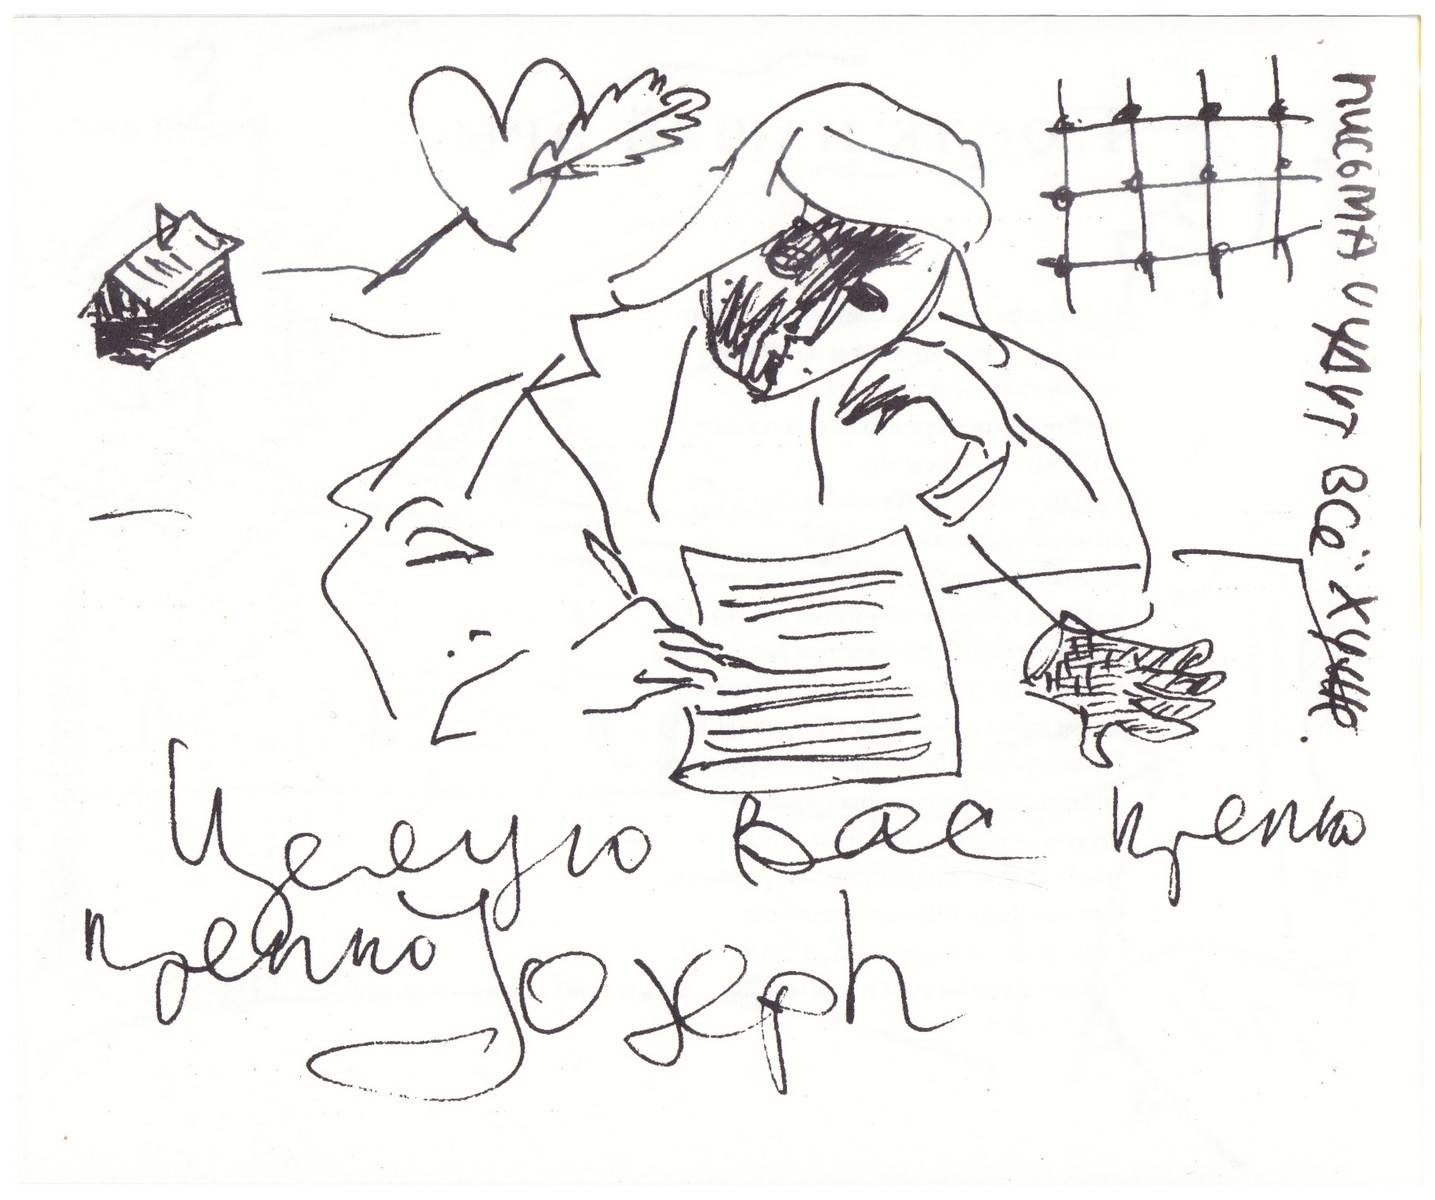 письма идут всё хуже.
Целую вас крепко
крепко Joseph